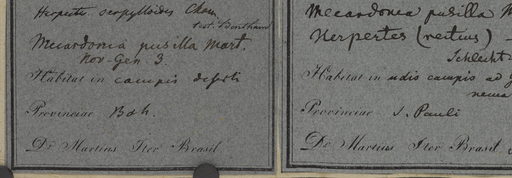 Herpestes serpylloides Cham.
test. Bentham
Mecardonia pusilla Mart.
Nov. Gen 3.
Habitat in campis deserti
Provinciae Bah
Dr Martius Iter Brasil.
Mecardonia pusilla M
Herpestes (rectius) —
Schlecht
Habitat in udis campis ad
Provinciae S. Pauli
Dr Martius Iter Brasil